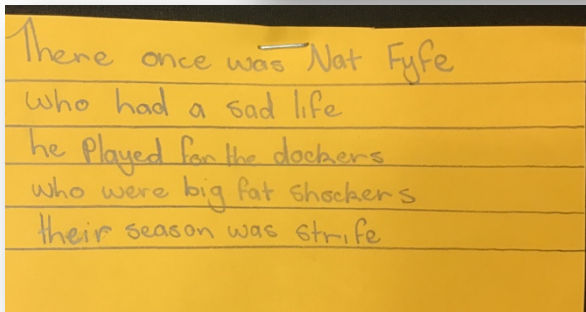 There once was Nat Fyfe
who had a sad life
he Played for the dockers
who were big fat shockers
their season was strife